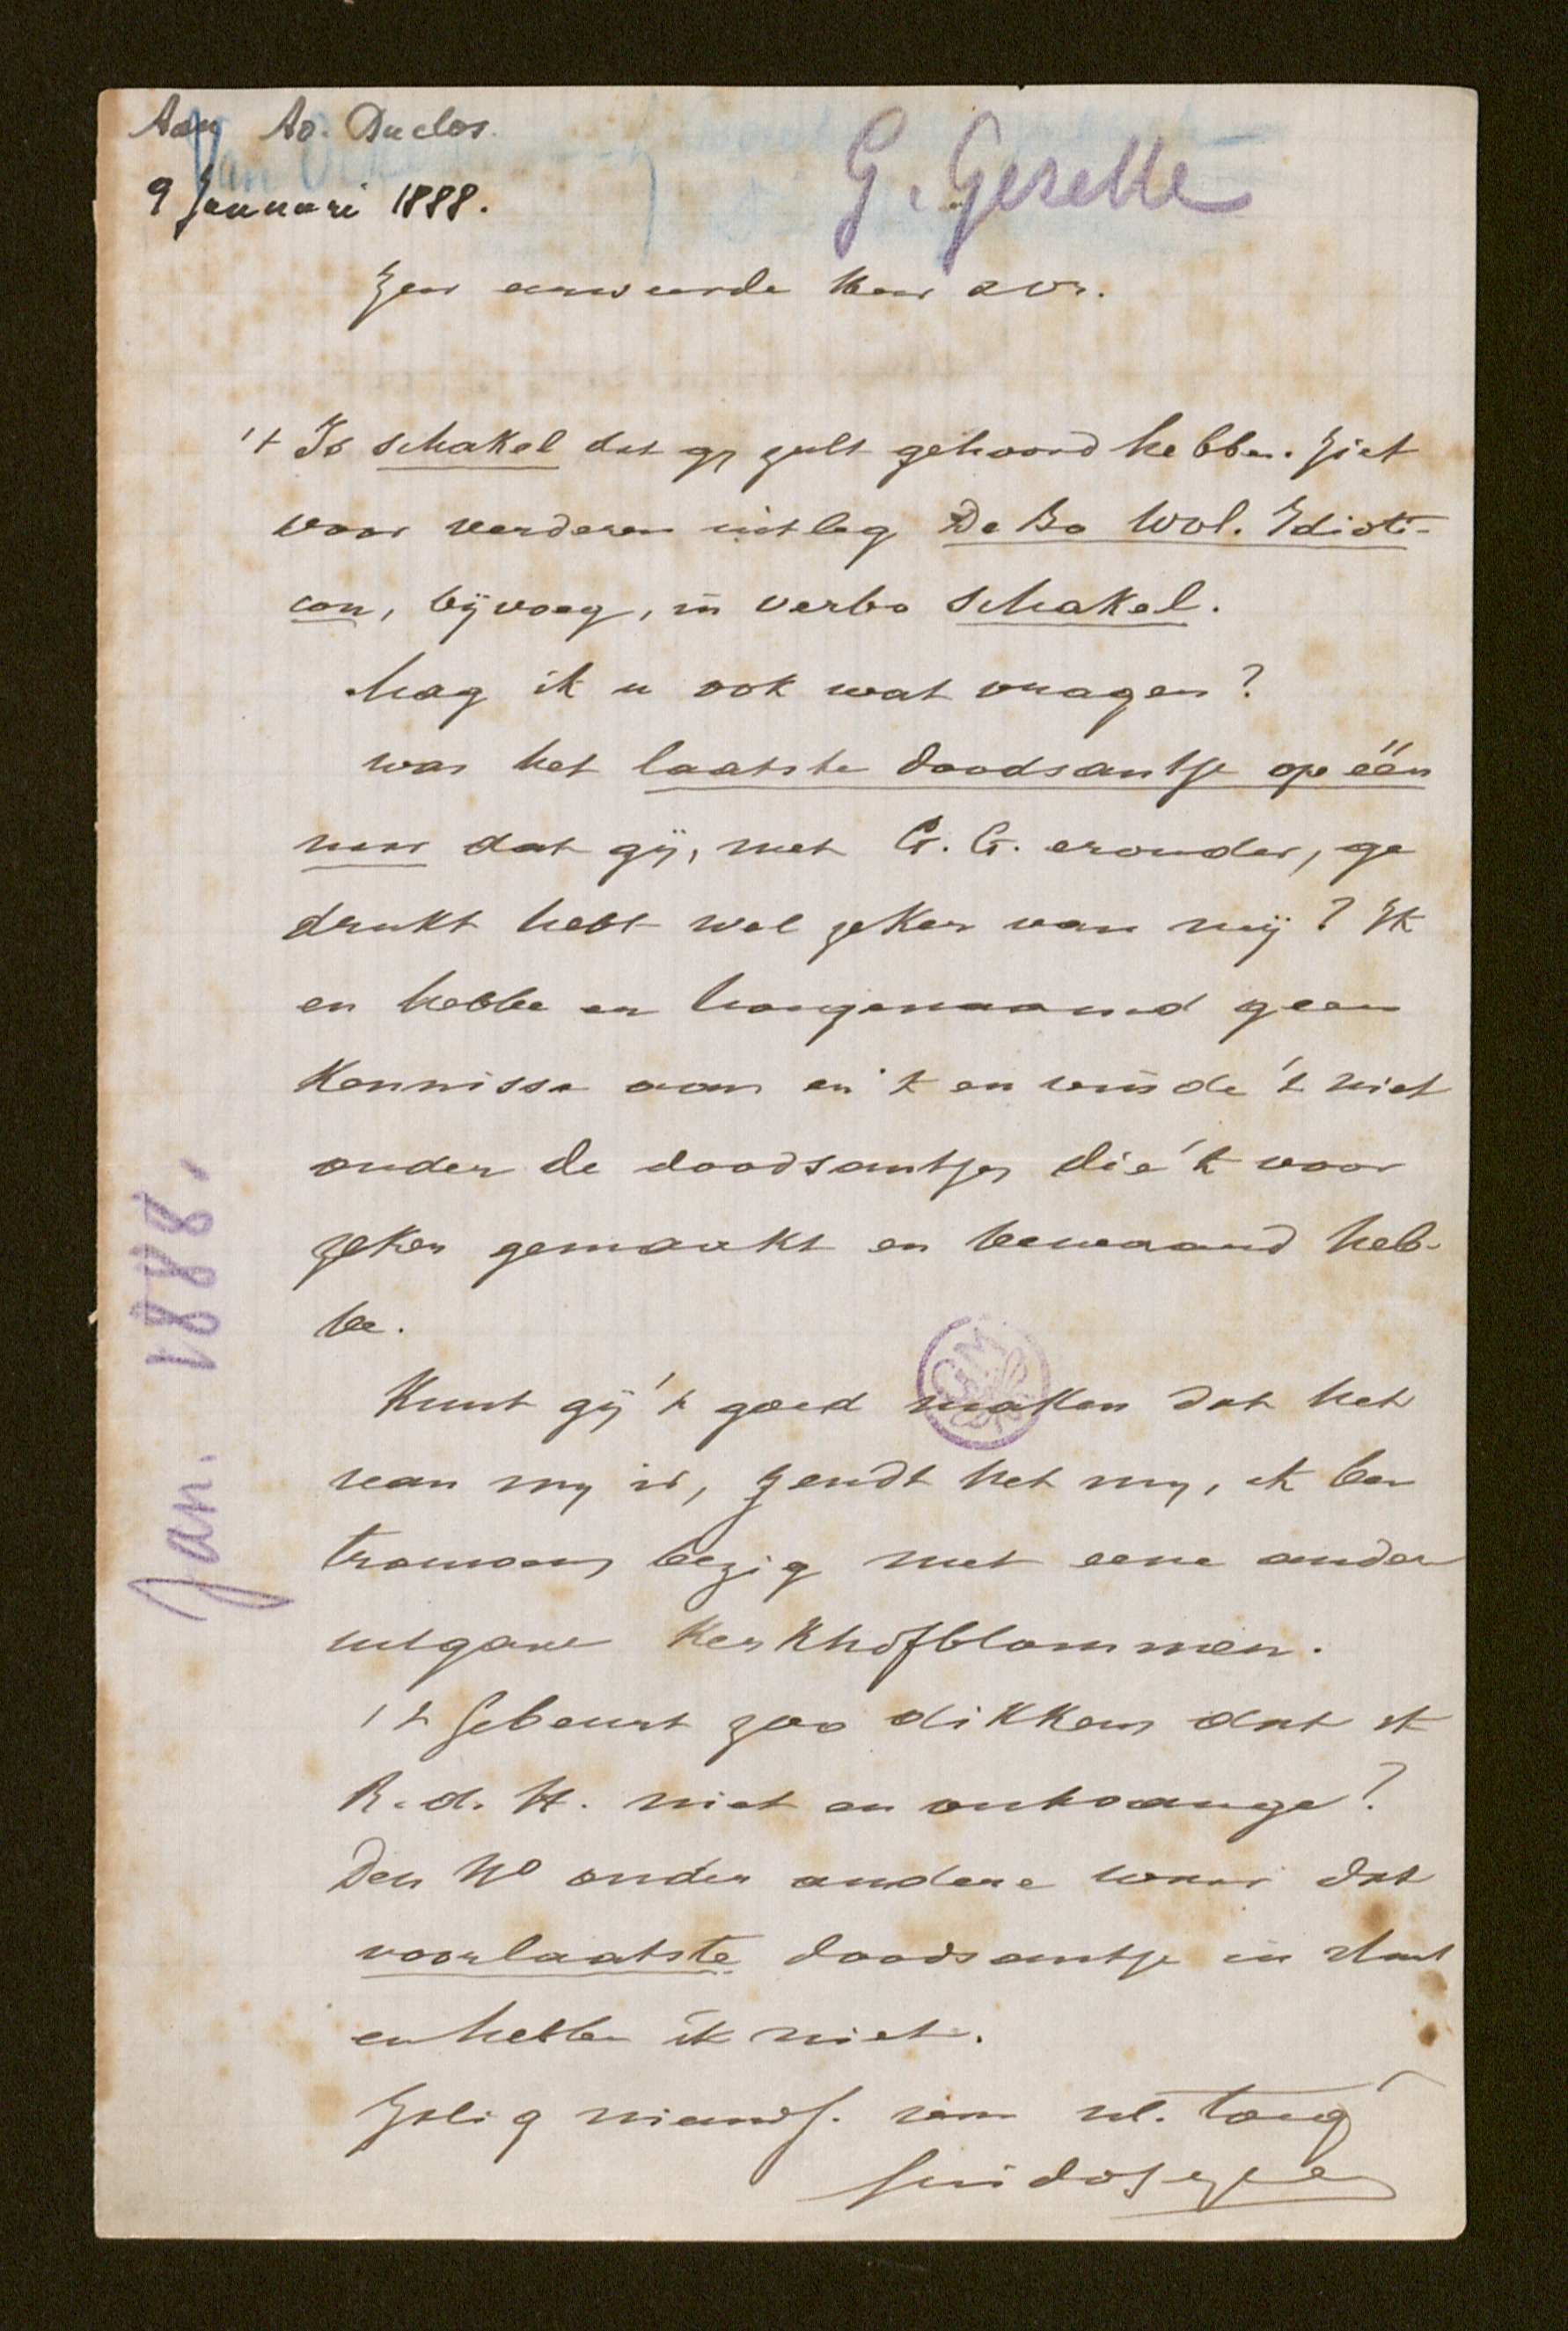 Aan Ad. Duclos.
9 Januari 1888.
G. Gezelle
Zeer eerweerde Heer
't Is schakel dat gy zult gehoord hebben. Ziet
voor verderen uitleg De Bo Wvl. Idioti-
con, bijvoeg, in verbo schakel.
Mag ik u ook wat vragen?
was het laatste doodsantje op één
naar dat gij, met G. G. eronder, ge
drukt hebt wel zeker van mij? Ik
en hebbe er hoegenaamd geen
kennisse aan en 'k en vinde 't niet
onder de doodsantjes die 'k voor
zeker gemaakt en bewaard heb-
be.
Kunt gij 't goed maken dat het
van my is, zendt het my, ik ben
bezig met eene ander
uitgave Kerkhofblommen.
't Gebeurt zoo dikkens dat ik
R. d. H. niet en ontvange?
Den No onder andere waar dat
voorlaatste doodsantje in staat
en hebbe ik niet.
Zalig nieuwj. van
Guido Gezelle
Jan. 1888.